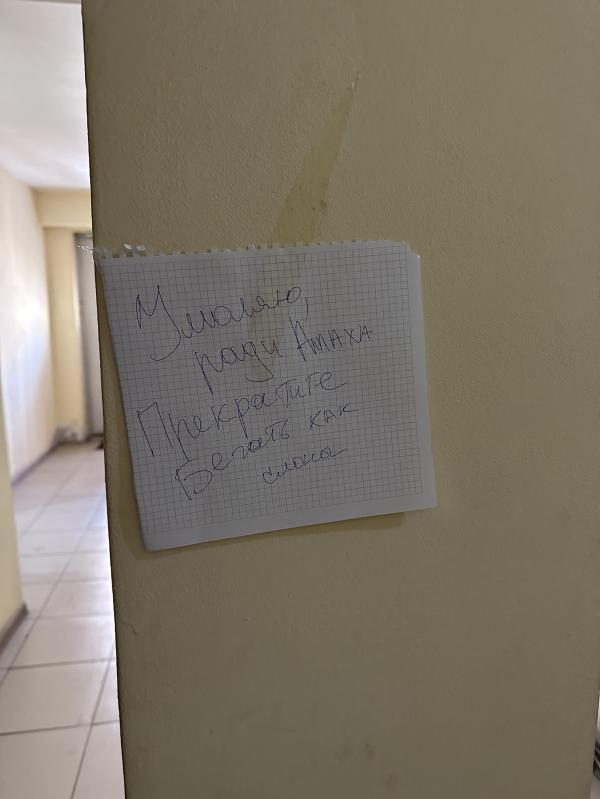 Умоляю,
ради Аллаха
Прекратите
Бегать как
слоны